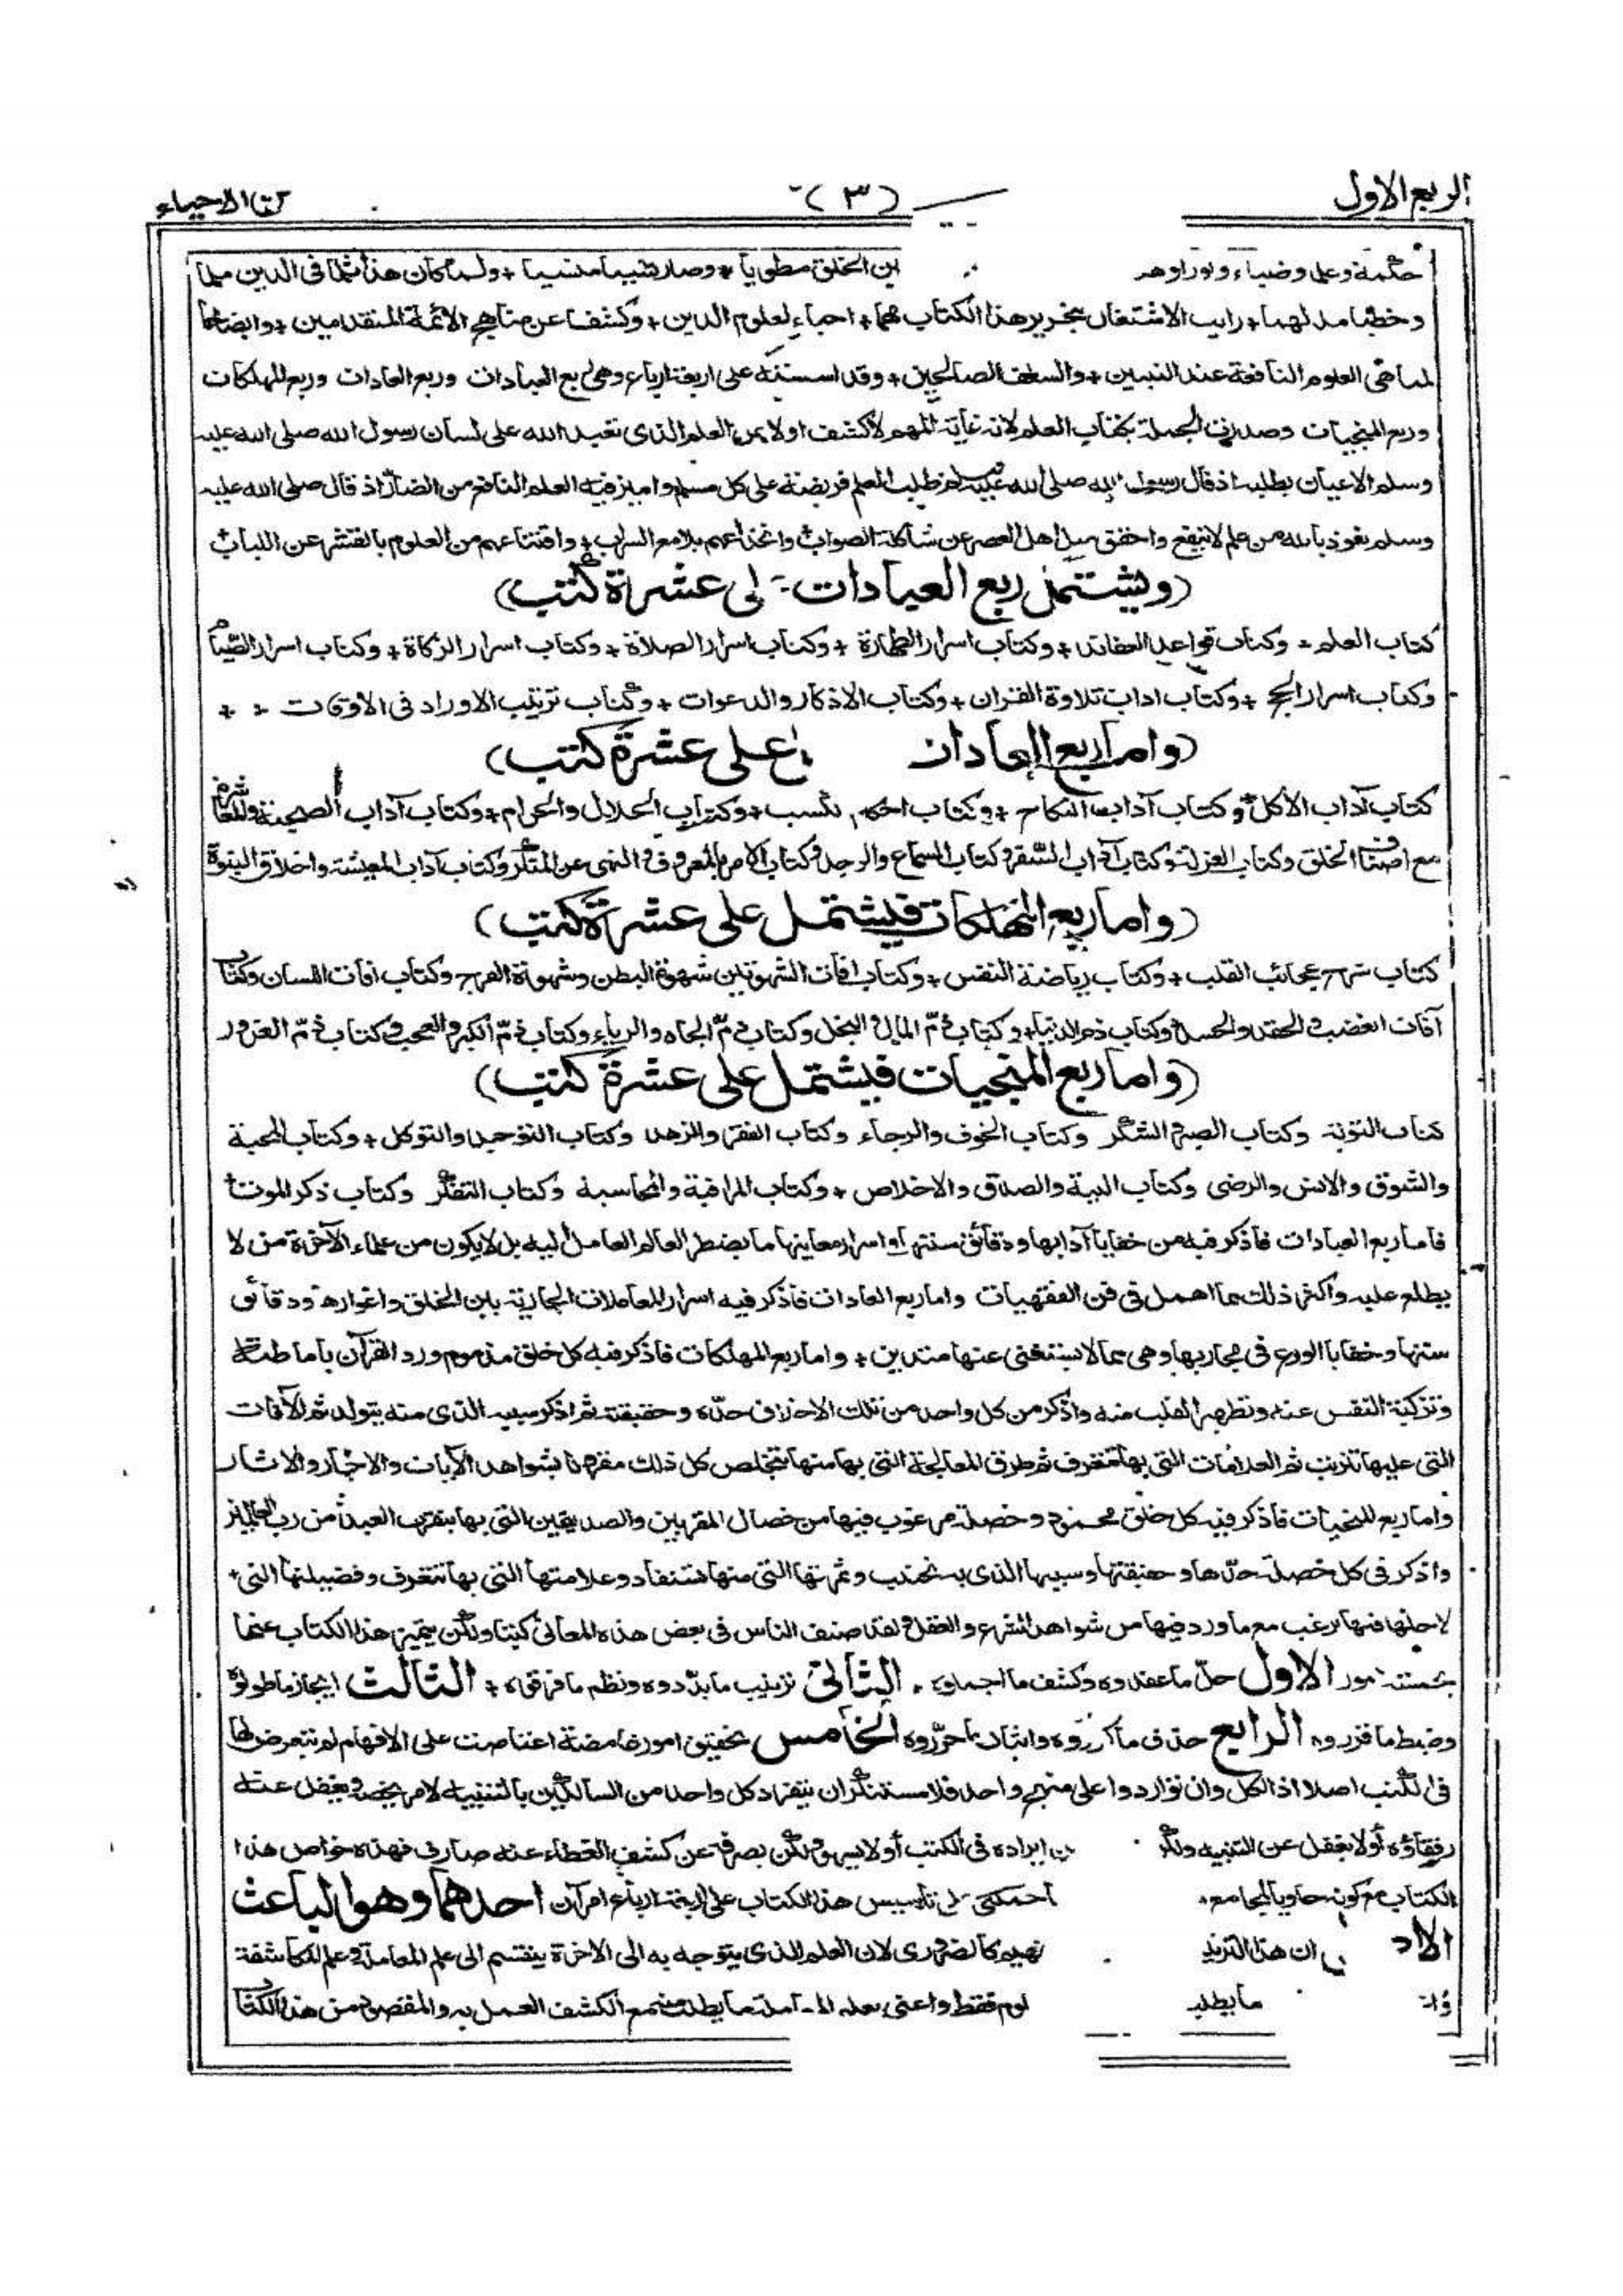 الربع الاول
(٣)
كتاب الاحياء
حكمة وعلما وضياء ونورا وهد ين الخلق مطويا + وصار نسيا منسيا + ولما كان هذا ثلما فى الدين ملما
وخطبا مدلهما + رايت الاشتغال بتحرير هذا الكتاب مهما + احياء لعلوم الدين + وكشفا عن مناهج الائمة المتقدمين + وايضاحا
لمناهى العلوم النافعة عند النبيين + والسلف الصالحين + وقد اسسته على اربعة ارباع وهى ربع العبادات وربع العادات وربع المهلكات
وربع المنجيات وصدرت الجملة بكتاب العلم لانه غاية المهم لاكشف اولا عن العلم الذى تعبد الله على لسان رسول الله صلى الله عليه
وسلم الاعيان بطلبه اذ قال رسول الله صلى الله عليه وسلم طلب العلم فريضة على كل مسلم واميز فيه العلم النافع من الضار اذ قال صلى الله عليه
وسلم نعوذ بالله من علم لا ينفع واحقق ميل اهل العصر عن شاكلة الصواب وانخداعهم بلامع السراب + واقتناعهم من العلوم بالقشر عن اللباب
(ويشتمل ربع العبادات لى عشرة كتب)
كتاب العلم + وكتاب قواعد العقائد + وكتاب اسرار الطهارة + وكتاب اسرار الصلاة + وكتاب اسرار الزكاة + وكتاب اسرار الصيام
وكتاب اسرار الحج + وكتاب اداب تلاوة القران + وكتاب الاذكار والدعوات + وكتاب ترتيب الاوراد فى الاوقات + +
(واما ربع العادات على عشرة كتب)
كتاب آداب الأكل وكتاب آداب النكاح + وكتاب احكام لكسب + وكتاب الحلال والحرام + وكتاب آداب الصحبة والمعاشرة
مع اصناف الخلق وكتاب العزلة وكتاب آداب السفر وكتاب السماع والوجد وكتاب الامر بالمعروف والنهى عن المنكر وكتاب آداب المعيشة واخلاق النبوة
(واما ربع المهلكات فيشتمل على عشرة كتب)
كتاب شرح عجائب القلب + وكتاب رياضة النفس + وكتاب افات الشهوتين شهوة البطن وشهوة الفرج وكتاب افات اللسان وكتاب
آفات الغضب والحقد والحسد وكتاب ذم الدنيا + وكتاب ذم المال والبخل وكتاب ذم الجاه والرياء وكتاب ذم الكبر والعجب وكتاب ذم الغرور
(واما ربع المنجيات فيشتمل على عشرة كتب)
كتاب التوبة وكتاب الصبر والشكر وكتاب الخوف والرجاء وكتاب الفقر والزهد وكتاب التوحيد والتوكل + وكتاب المحبة
والشوق والانس والرضى وكتاب النية والصدق والاخلاص + وكتاب المراقبة والمحاسبة وكتاب التفكر وكتاب ذكر الموت +
فاما ربع العبادات فاذكر فيه من خفايا آدابها ودقائق سننها واسرار معاينها ما يضطر العالم العامل اليه بل لا يكون من علماء الآخرة من لا
يطلع عليه واكثر ذلك مما اهمل فى فن الفقهيات واما ربع العادات فاذكر فيه اسرار المعاملات الجارية بين الخلق واغوارها ودقائق
سننها وخفايا الورع فى مجاريها وهى مما لا يستغنى عنها متدين + واما ربع المهلكات فاذكر فيه كل خلق مذموم ورد القرآن باماطته
وتزكية النفس عنه وتطهير القلب منه واذكر من كل واحد من تلك الاخلاق حده وحقيقته ثم اذكر سببه الذى منه يتولد ثم الآفات
التى عليها تترتب ثم العلامات التى بها تتعرف ثم طرق المعالجة التى بها منها يتخلص كل ذلك مقرونا بشواهد الآيات والاخبار والاثار
واما ربع المنجيات فاذكر فيه كل خلق محمود وخصلة مرغوب فيها من خصال المقربين والصديقين التى بها يتقرب العبد من رب العالمين
واذكر فى كل خصلة حدها وحقيقتها وسببها الذى به تجتلب وثمرتها التى منها تستفاد وعلامتها التى بها تتعرف وفضيلتها التى +
لاجلها فيها يرغب مع ما ورد فيها من شواهد الشرع والعقل ولقد صنف الناس فى بعض هذه المعانى كتبا ولكن يتميز هذا الكتاب عنها
بخمسة امور الاول حل ما عقدوه وكشف ما اجملوه . الثانى ترتيب ما بددوه ونظم ما فرقوه + الثالث ايجاز ما طولوه
وضبط ما قرروه الرابع حذف ما كرروه واثبات ما حرروه الخامس تحقيق امور غامضة اعتاصت على الافهام لم تتعرض لها
فى الكتب اصلا اذ الكل وان تواردوا على منهج واحد فلا مستنكر ان يتفرد كل واحد من السالكين بالتنبيه لامر يخصه ويغفل عنه
رفقاؤه أو لا يغفل عن التنبيه ولكن ن ايراده فى الكتب أو لا يسهو ولكن يصرفه عن كشف الغطاء عنه صارف فهذه خواص هذا
الكتاب مع كونه حاويا لمجامع حملنى على تاسيس هذا الكتاب على اربعة ارباع امرآن احدهما وهو الباعث
ان هذا الترتيب تفهيم كالضرورى لان العلم الذى يتوجه به الى الاخرة ينقسم الى علم المعاملة وعلم المكاشفة
ما يطلب لوم فقط واعنى بعلم المعاملة ما يطلب منه مع الكشف العمل به والمقصود من هذا الكتاب